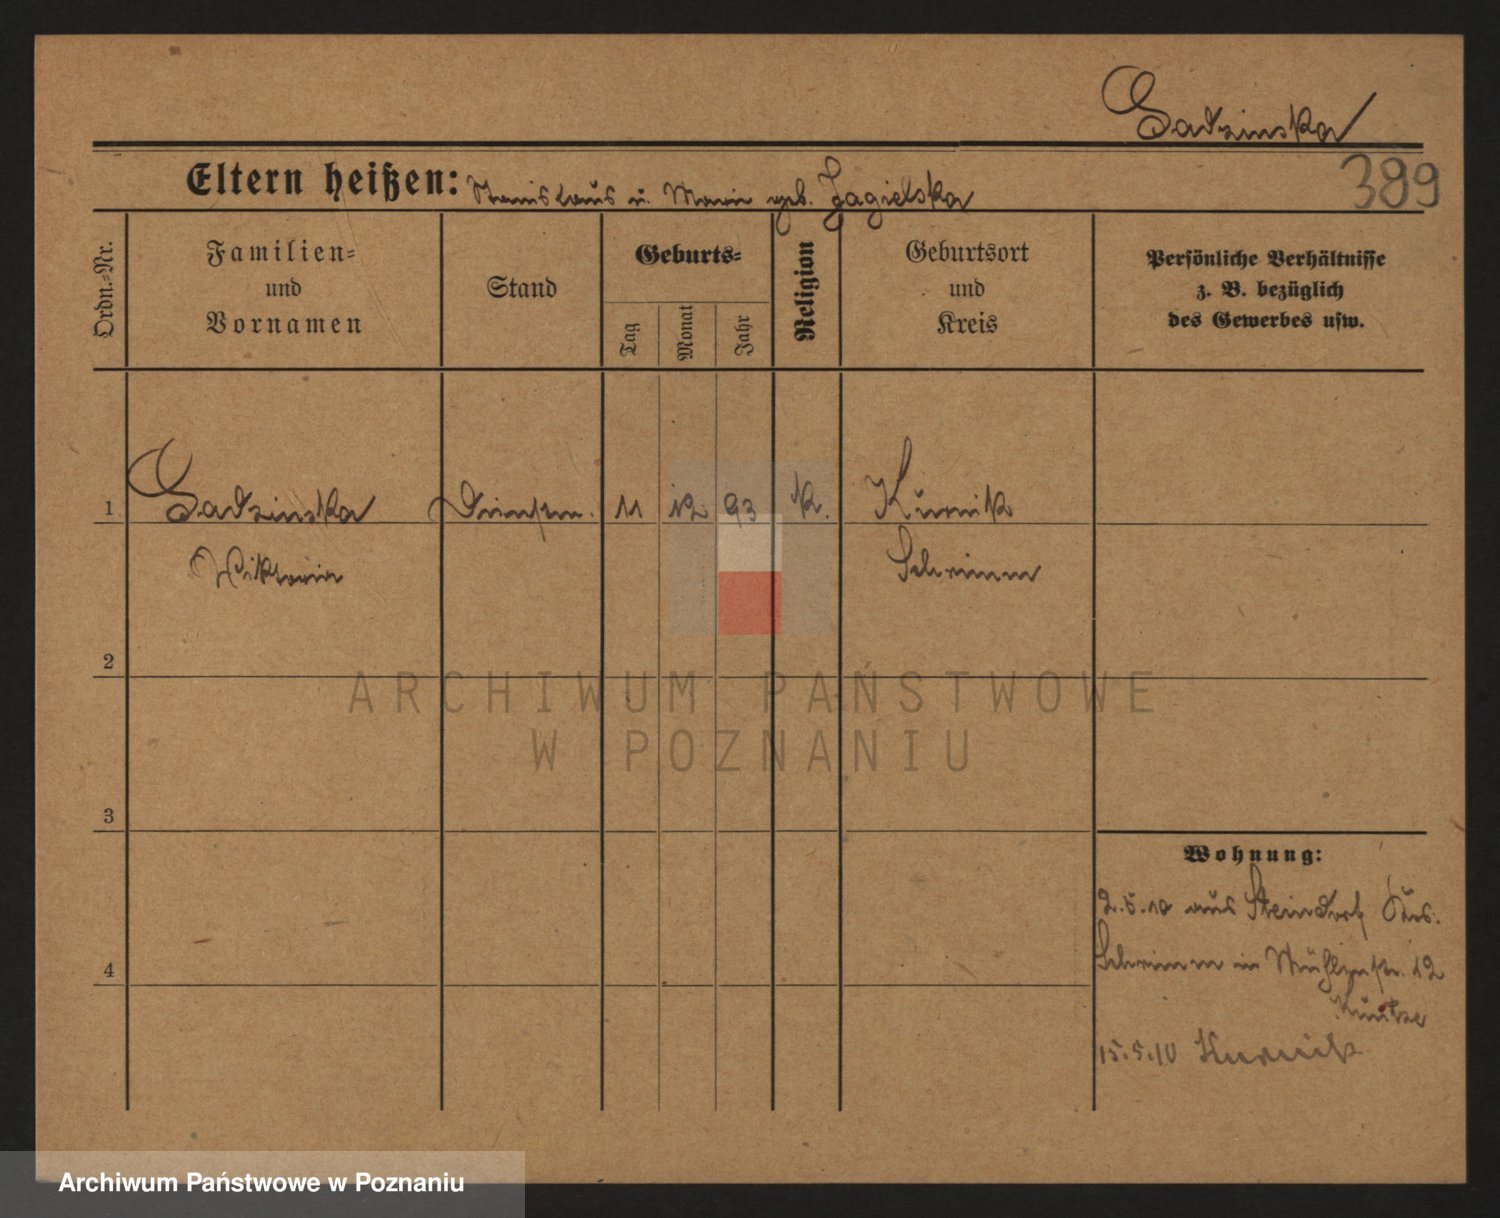 Sadzinska
389
Eltern heißen: Stanislaus u. Marie geb. Jagielska
Ordn.-Nr.
Familien-
und
Vornamen
Stand
Geburts-
Tag
Monat
Jahr
Religion
Geburtsort
und
Kreis
Persönliche Verhältnisse
z. B. bezüglich
des Gewerbes usw.
1 Sadzinska 11 12 93 k. Kurnik
Wiktoria Schrimm
2
3
4
Wohnung:
2.5.10 aus Steindorf Krs.
Schrimm in Mühlenstr. 12
Kuntze
15.5.10 Kurnik
ARCHIWUM PAŃSTWOWE
W POZNANIU
Archiwum Państwowe w Poznaniu